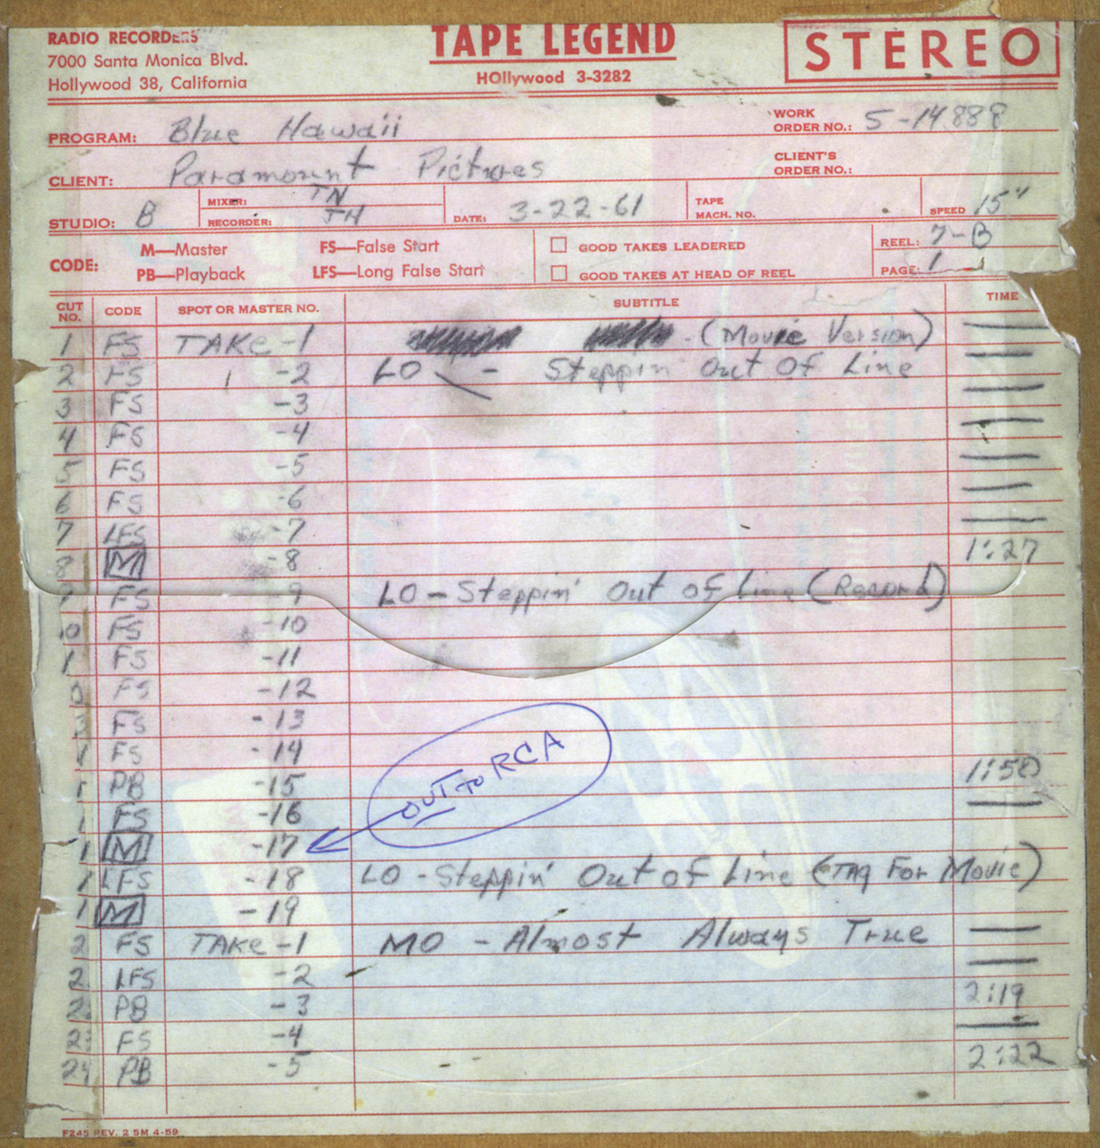 RADIO RECORDERS
7000 Santa Monica Blvd.
Hollywood 38, California
TAPE LEGEND
HOllywood 3-3282
STEREO
PROGRAM: Blue Hawaii
WORK ORDER NO.: 5-14888
CLIENT: Paramount Pictures
CLIENT'S ORDER NO.:
STUDIO: B
MIXER: TN
RECORDER: TH
DATE: 3-22-61
TAPE MACH. NO.
SPEED 15"
CODE:
M—Master
PB—Playback
FS—False Start
LFS—Long False Start
GOOD TAKES LEADERED
GOOD TAKES AT HEAD OF REEL
REEL: 7-B
PAGE: 1
CUT NO. CODE SPOT OR MASTER NO. SUBTITLE TIME
1 FS TAKE -1 (Movie Version)
2 FS -2 LO - Steppin Out Of Line
3 FS -3
4 FS -4
5 FS -5
6 FS -6
7 LFS -7
8 M -8 1:27
FS -9 LO - Steppin' Out of Line (Record)
10 FS -10
1 FS -11
FS -12
3 FS -13
1 FS -14
PB -15 1:50
1 FS -16
1 M -17
OUT TO RCA
1 LFS -18 LO - Steppin' Out of Line (TAG For Movie)
1 M -19
2 FS TAKE -1 MO - Almost Always True
2 LFS -2
2 PB -3 2:19
2 FS -4
24 PB -5 2:22
F245 REV. 2 5M 4-59